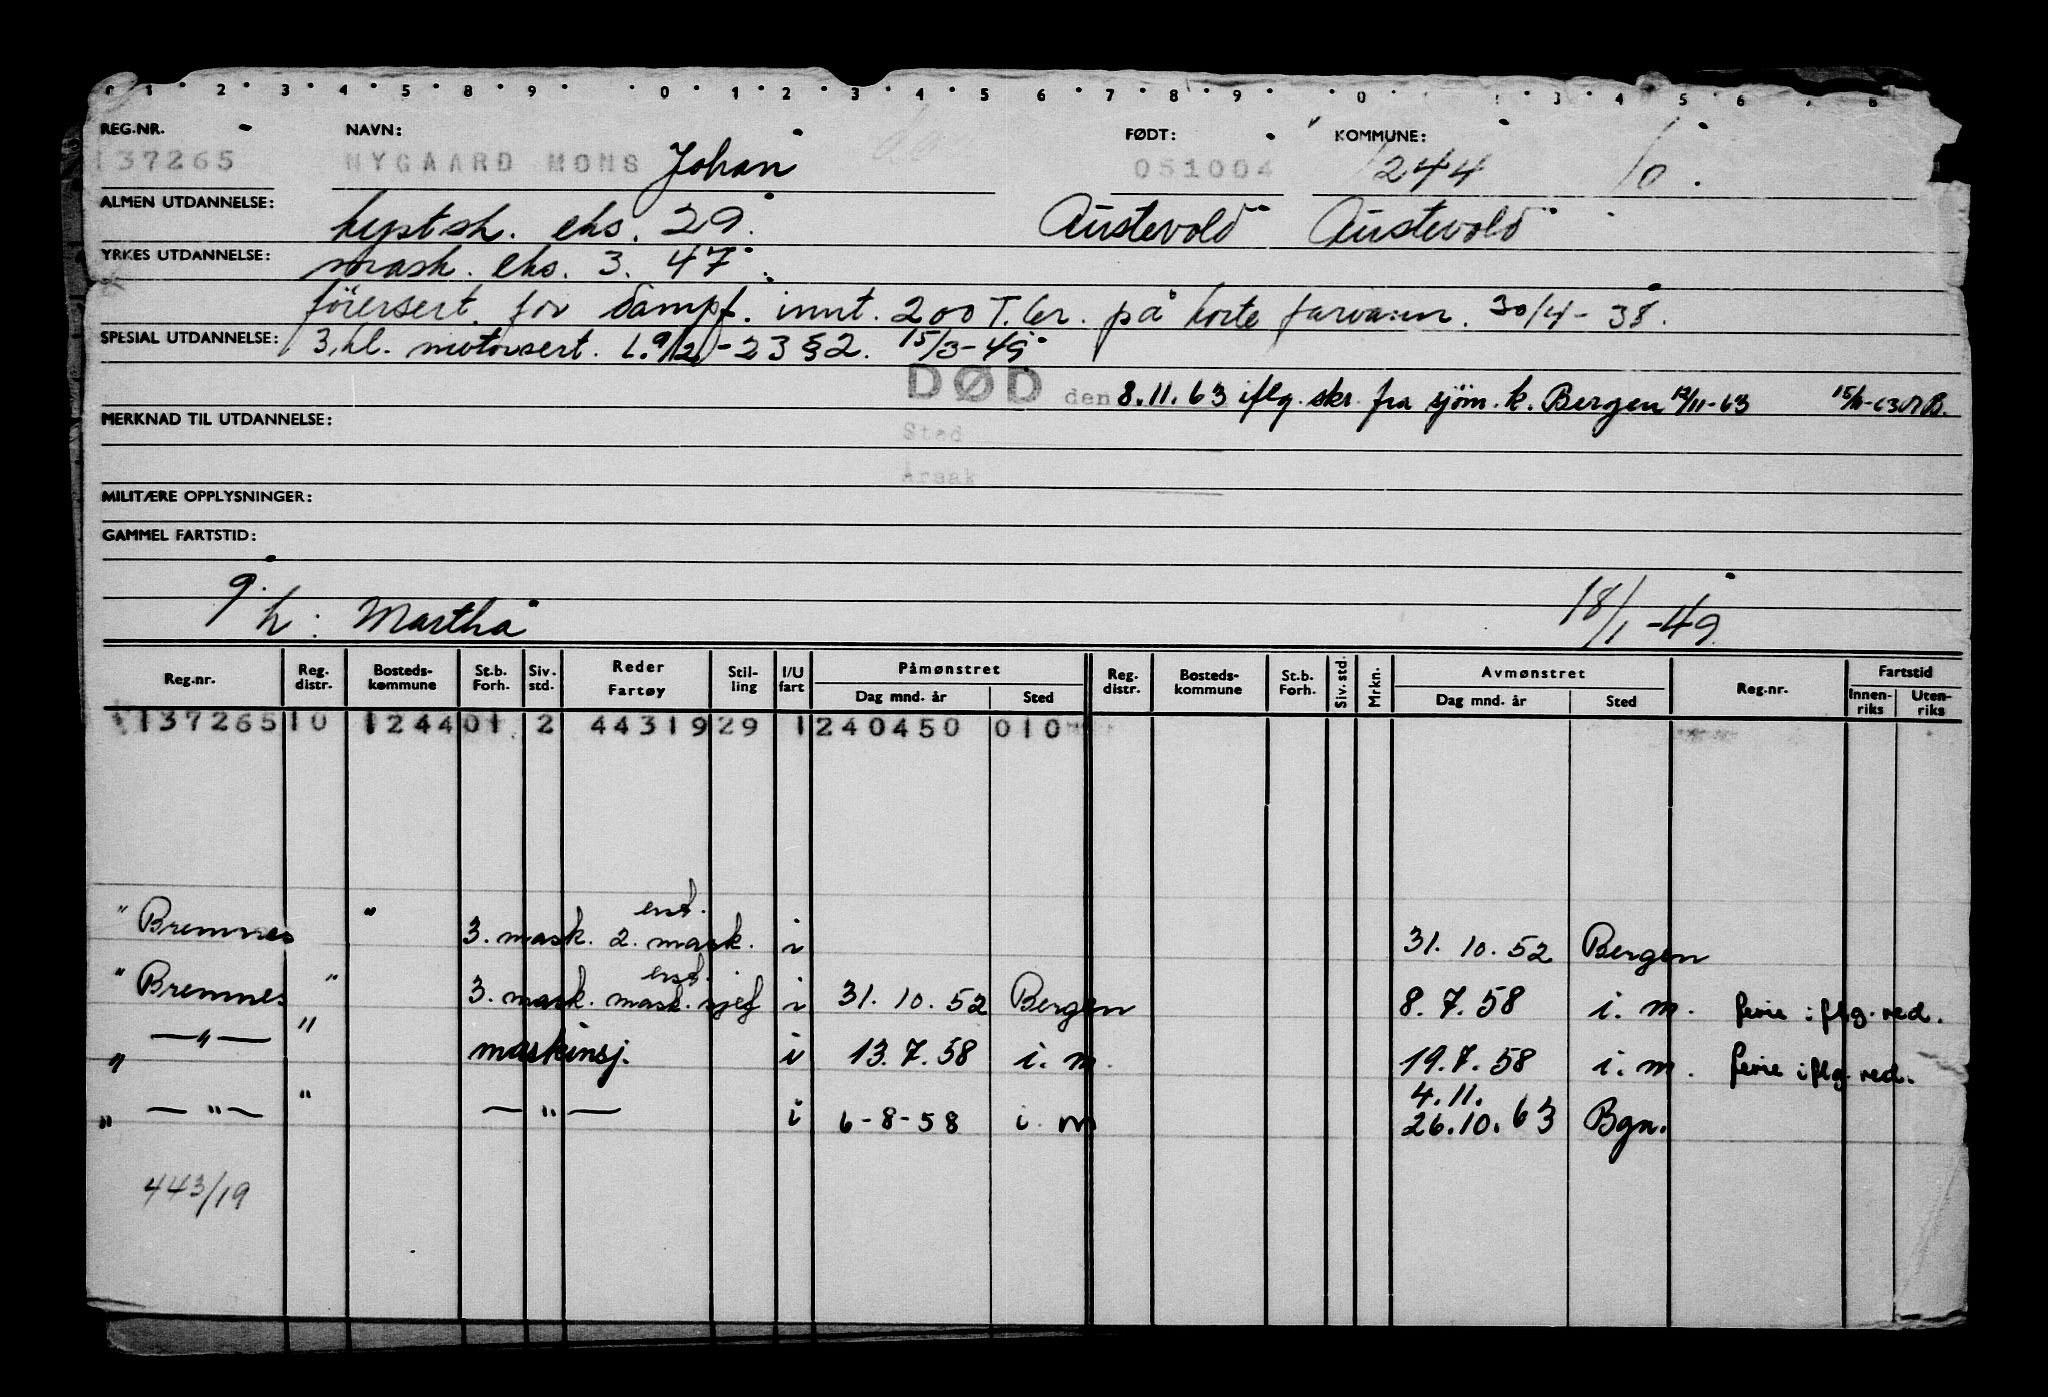 REG.NR. NAVN: FØDT: KOMMUNE:
137265 NYGAARD MONS Johan 051004 1244 10.
ALMEN UTDANNELSE: kystsk. eks. 29. Austevold Austevold
YRKES UTDANNELSE: mask. eks. 3. 47.
förersert. for dampf. innt. 200 T. br. på korte farvann. 30/4-38.
SPESIAL UTDANNELSE: 3. kl. motorsert. L. 9/2-23 §2. 15/3-49
DØD den 8.11.63 iflg. skr. fra sjöm. k. Bergen 12/11-63
MERKNAD TIL UTDANNELSE:
Sted
Årsak
MILITÆRE OPPLYSNINGER:
GAMMEL FARTSTID:
g.
h: Martha 18/1-49
Reg.nr. Reg. distr. Bosteds-kommune St.b. Forh. Siv. std. Reder Fartøy Stil-ling I/U fart Påmønstret Dag mnd. år Sted Reg. distr. Bosteds-kommune St.b. Forh. Siv. std. Mrkn. Avmønstret Dag mnd. år Sted Reg.nr. Fartstid Innen-riks Uten-riks
137265 10 1244 01 2 44319 29 1 240450 010
enst.
" Bremnes " 3. mask. 2. mask. i 31. 10. 52 Bergen
enst.
" Bremnes " 3. mask. mask. sjef i 31. 10. 52 Bergen 8. 7. 58 i. m. ferie iflg. red.
" —"— " maskinsj. i 13. 7. 58 i. m. 19. 7. 58 i. m. ferie iflg. red.
4. 11.
" —"— " —"— i 6-8-58 i. m 26. 10. 63 Bgn.
443/19